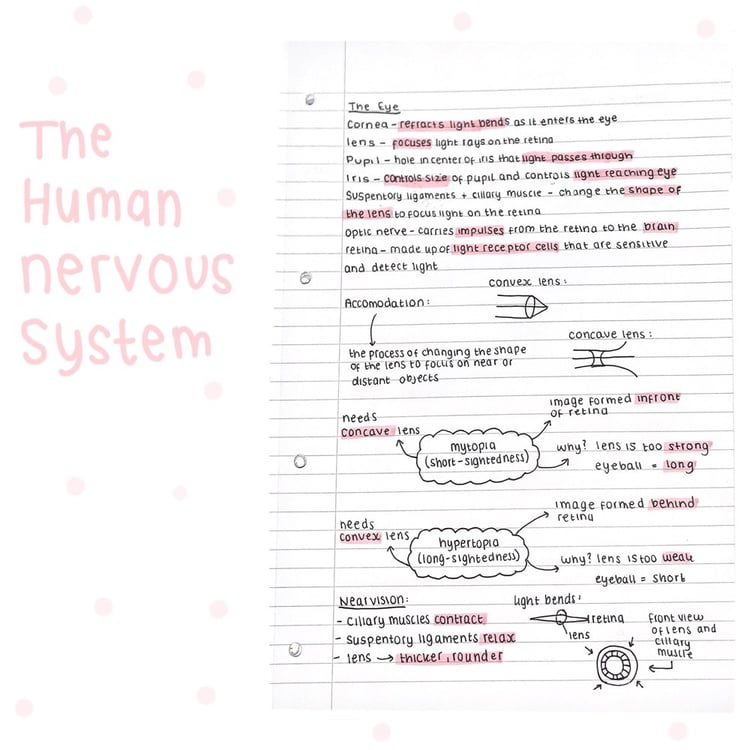 The
Human
nervous
System
The Eye
Cornea - refracts light bends as it enters the eye
lens - focuses light rays on the retina
Pupil - hole in center of iris that light passes through
Iris - controls size of pupil and controls light reaching eye
Suspentory ligaments + cillary muscle - change the shape of
the lens to focus light on the retina
Optic nerve - carries impulses from the retina to the brain
retina - made up of light receptor cells that are sensitive
and detect light
convex lens:
Accomodation:
concave lens:
the process of changing the shape
of the lens to focus on near or
distant objects
image formed infront
of retina
needs
concave lens
mytopia
(short-sightedness)
why? lens is too strong
eyeball = long
image formed behind
retina
needs
convex lens
hypertopia
(long-sightedness)
why? lens is too weak
eyeball = short
Near vision:
- cillary muscles contract
- suspentory ligaments relax
- lens → thicker, rounder
light bends:
retina
lens
front view
of lens and
cillary
muscle